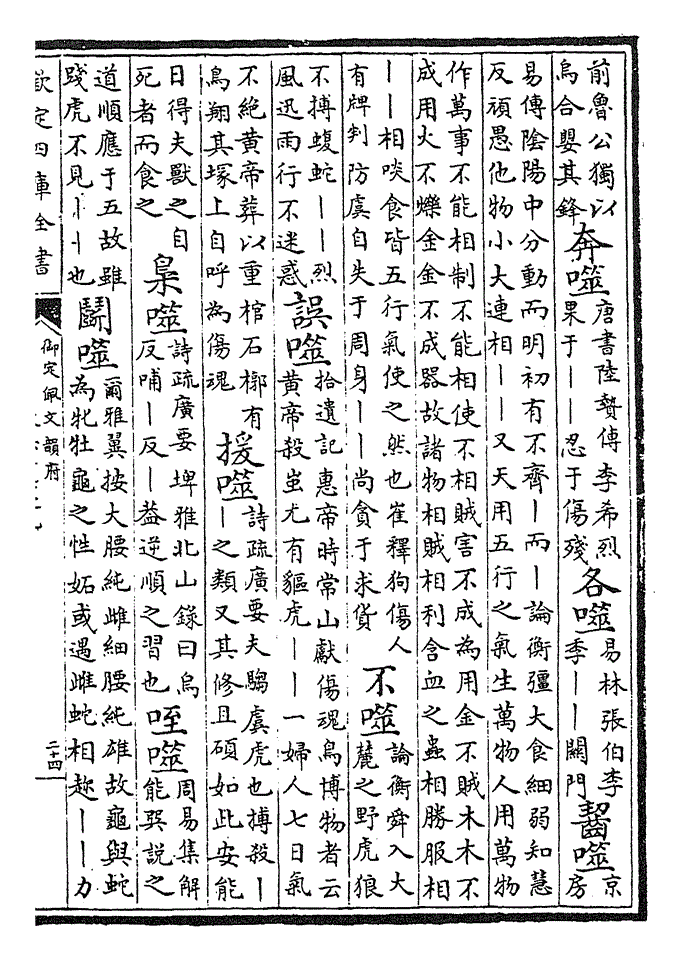 前魯公獨以
烏合嬰其鋒
奔噬
唐書陸贄傳李希烈
果于丨丨忍于傷殘
各噬
易林張伯李
季丨丨鬬門
齧噬
京
房
易傳陰陽中分動而明初有不齊丨而丨論衡彊大食細弱知慧
反頑愚他物小大連相丨丨又天用五行之氣生萬物人用萬物
作萬事不能相制不能相使不相賊害不成為用金不賊木木不
成用火不爍金金不成器故諸物相賊相利含血之蟲相勝服相
丨丨相啖食皆五行氣使之然也崔釋狗傷人
有牌判防虞自失于周身丨丨尚貪于求貨
不噬
論衡舜入大
麓之野虎狼
不搏蝮蛇丨丨烈
風迅雨行不迷惑
誤噬
拾遺記惠帝時常山獻傷魂鳥博物者云
黄帝殺蚩尤有貙虎丨丨一婦人七日氣
不絶黄帝葬以重棺石槨有
鳥翔其塚上自呼為傷魂
援噬
詩疏廣要夫騶虞虎也搏殺丨
丨之類又其修且碩如此安能
日得夫獸之自
死者而食之
梟噬
詩疏廣要埤雅北山錄曰烏
反哺丨反丨葢逆順之習也
咥噬
周易集解
能巽説之
道順應于五故雖
踐虎不見丨丨也
鬬噬
爾雅翼按大腰純雌細腰純雄故龜與蛇
為牝牡龜之性妬或遇雌蛇相趂丨丨力
欽定四庫全書
御定佩文韻府
二十四